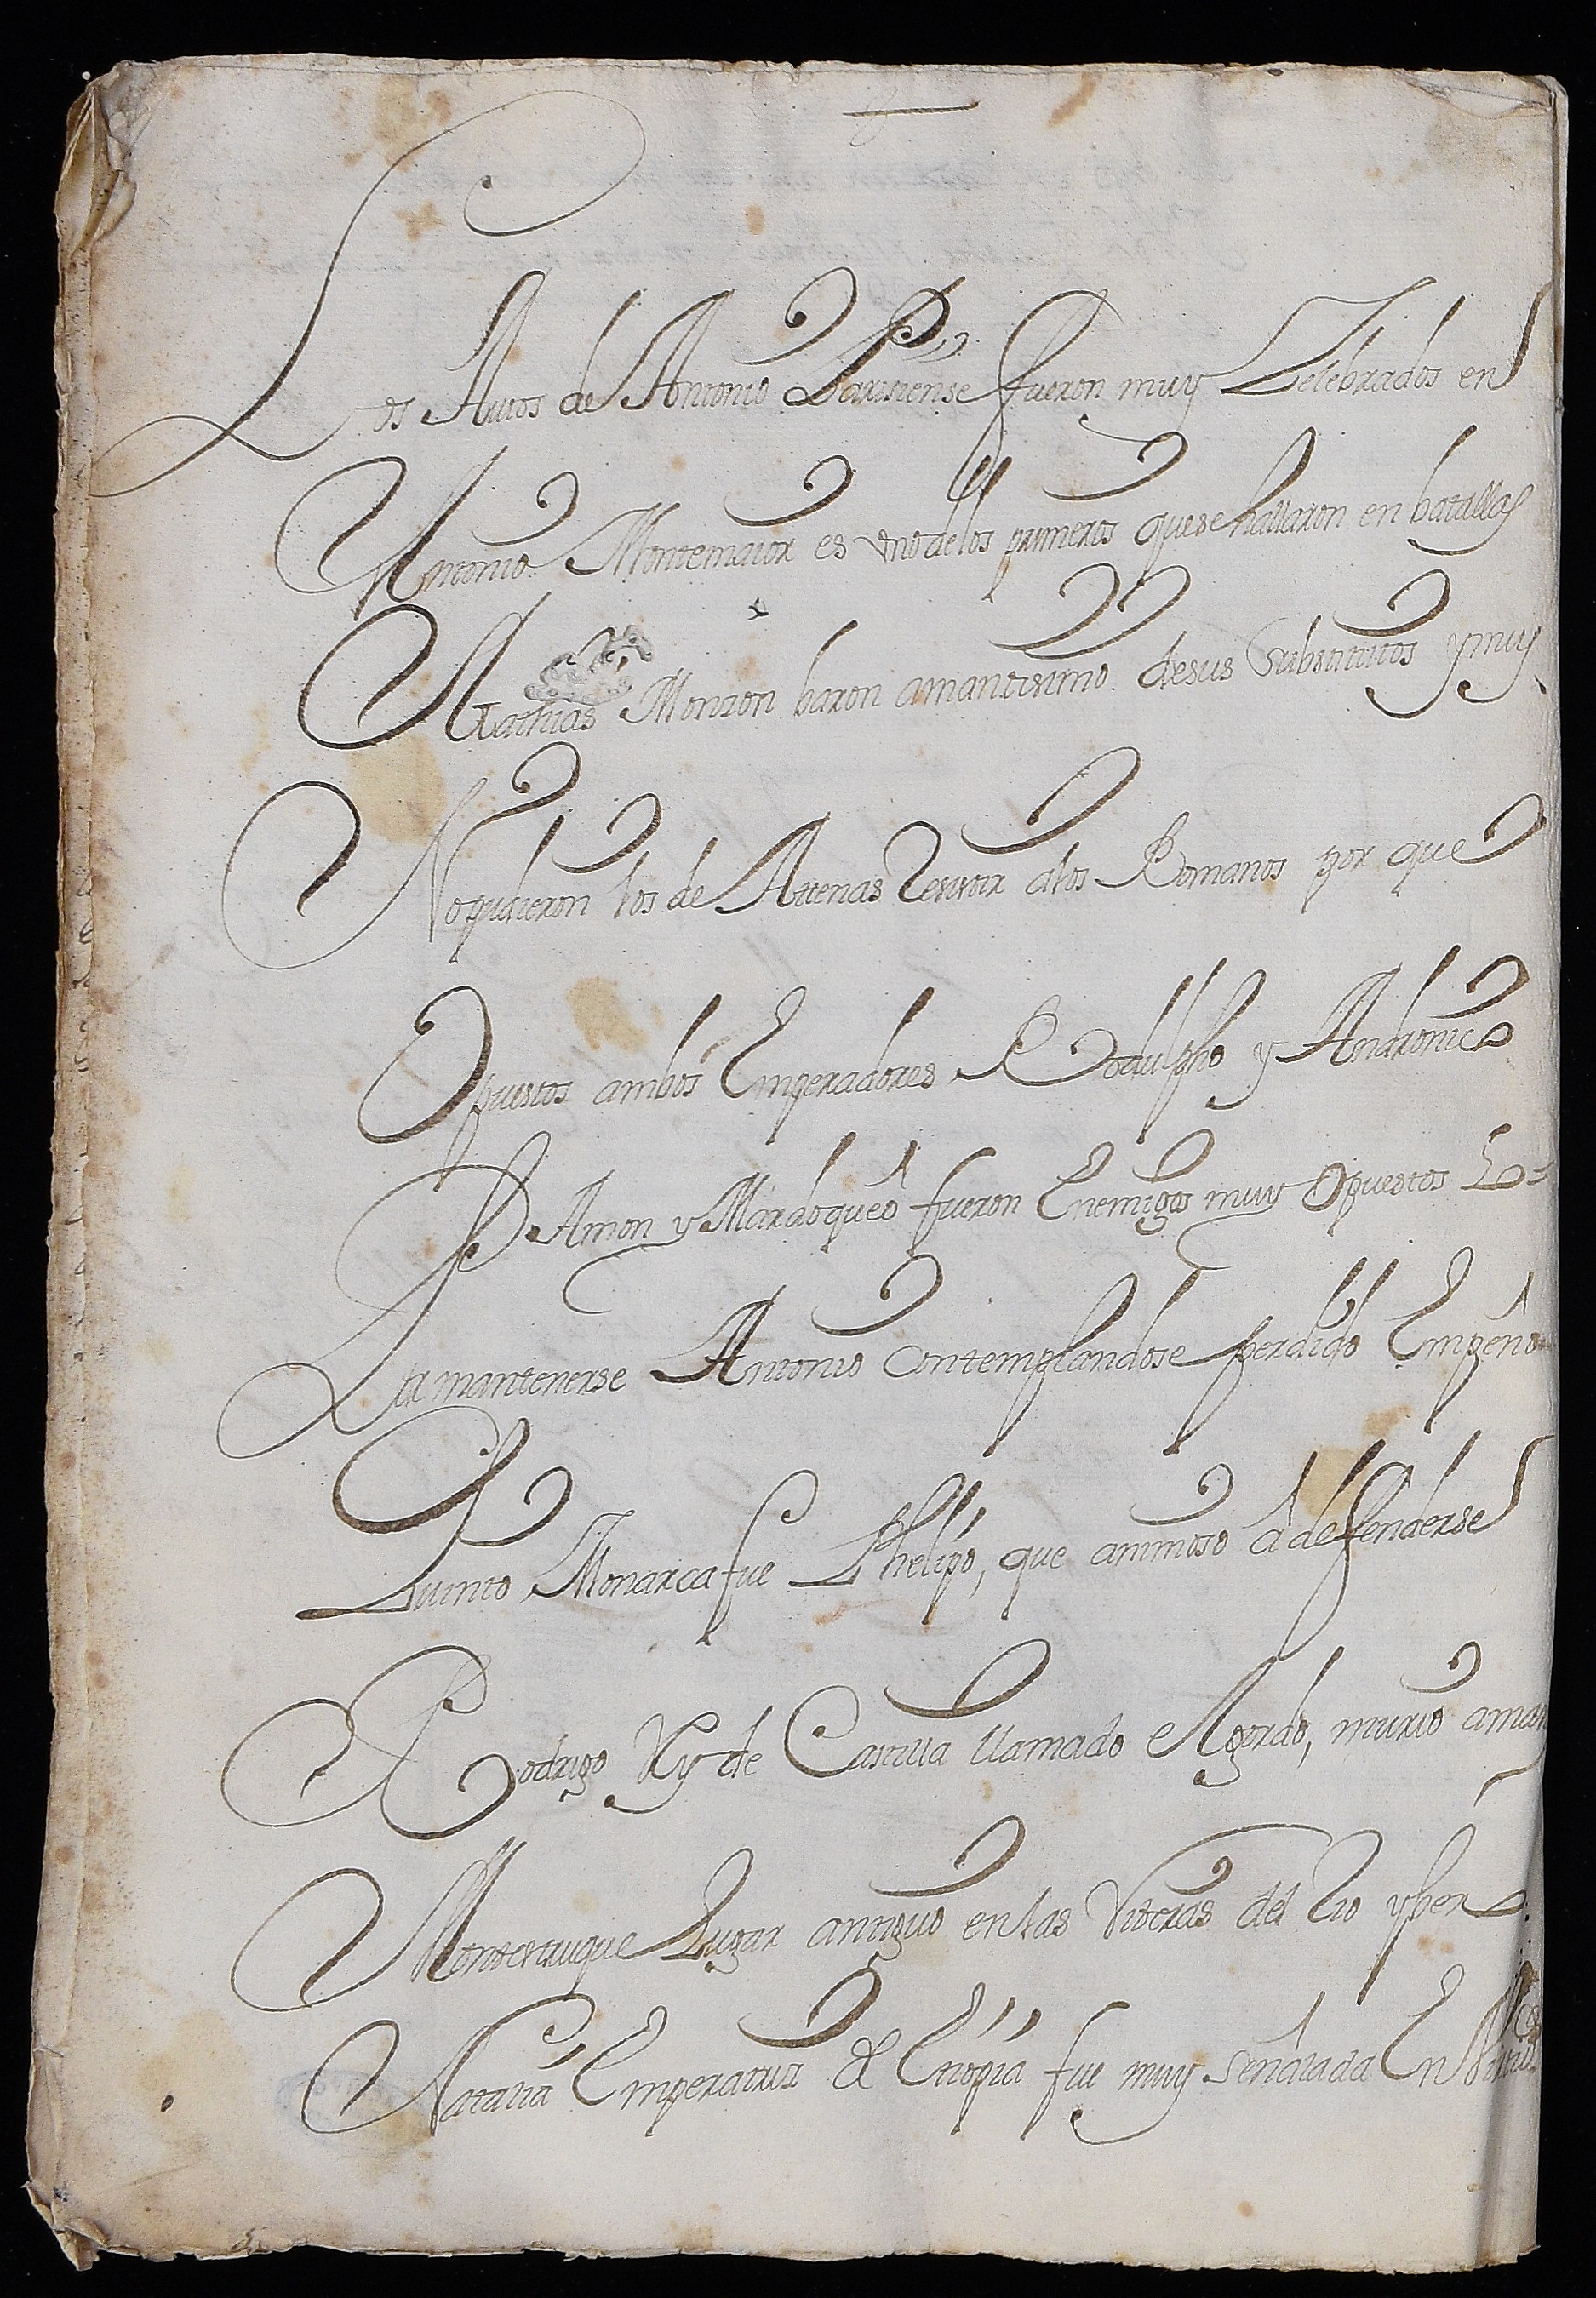 Los Autos de Antonio Parisiense fueron muy Zelebrados en
Antonio Montemaior es uno delos primeros quese hallaron en batallas
Mathias Monzon baron amantisimo desus Substitutos y muy
No pudieron los de Attenas Resistir alos Romanos por que
Opuestos ambos Emperadores Rodulpho y Andronico
Amon y Mardoqueo fueron Enemigos muy Opuestos Los
Por mantenerse Antonio Contemplandose perdido Empeño
Quinto Monarca fue Phelipo, que animoso a defenderse
Rodrigo Rey de Castilla llamado el gordo, murio aman
Montestruque Lugar antiguo en las Riberas del Rio yber
Natalia Emperatriz de Etiopia fue muy señalada En